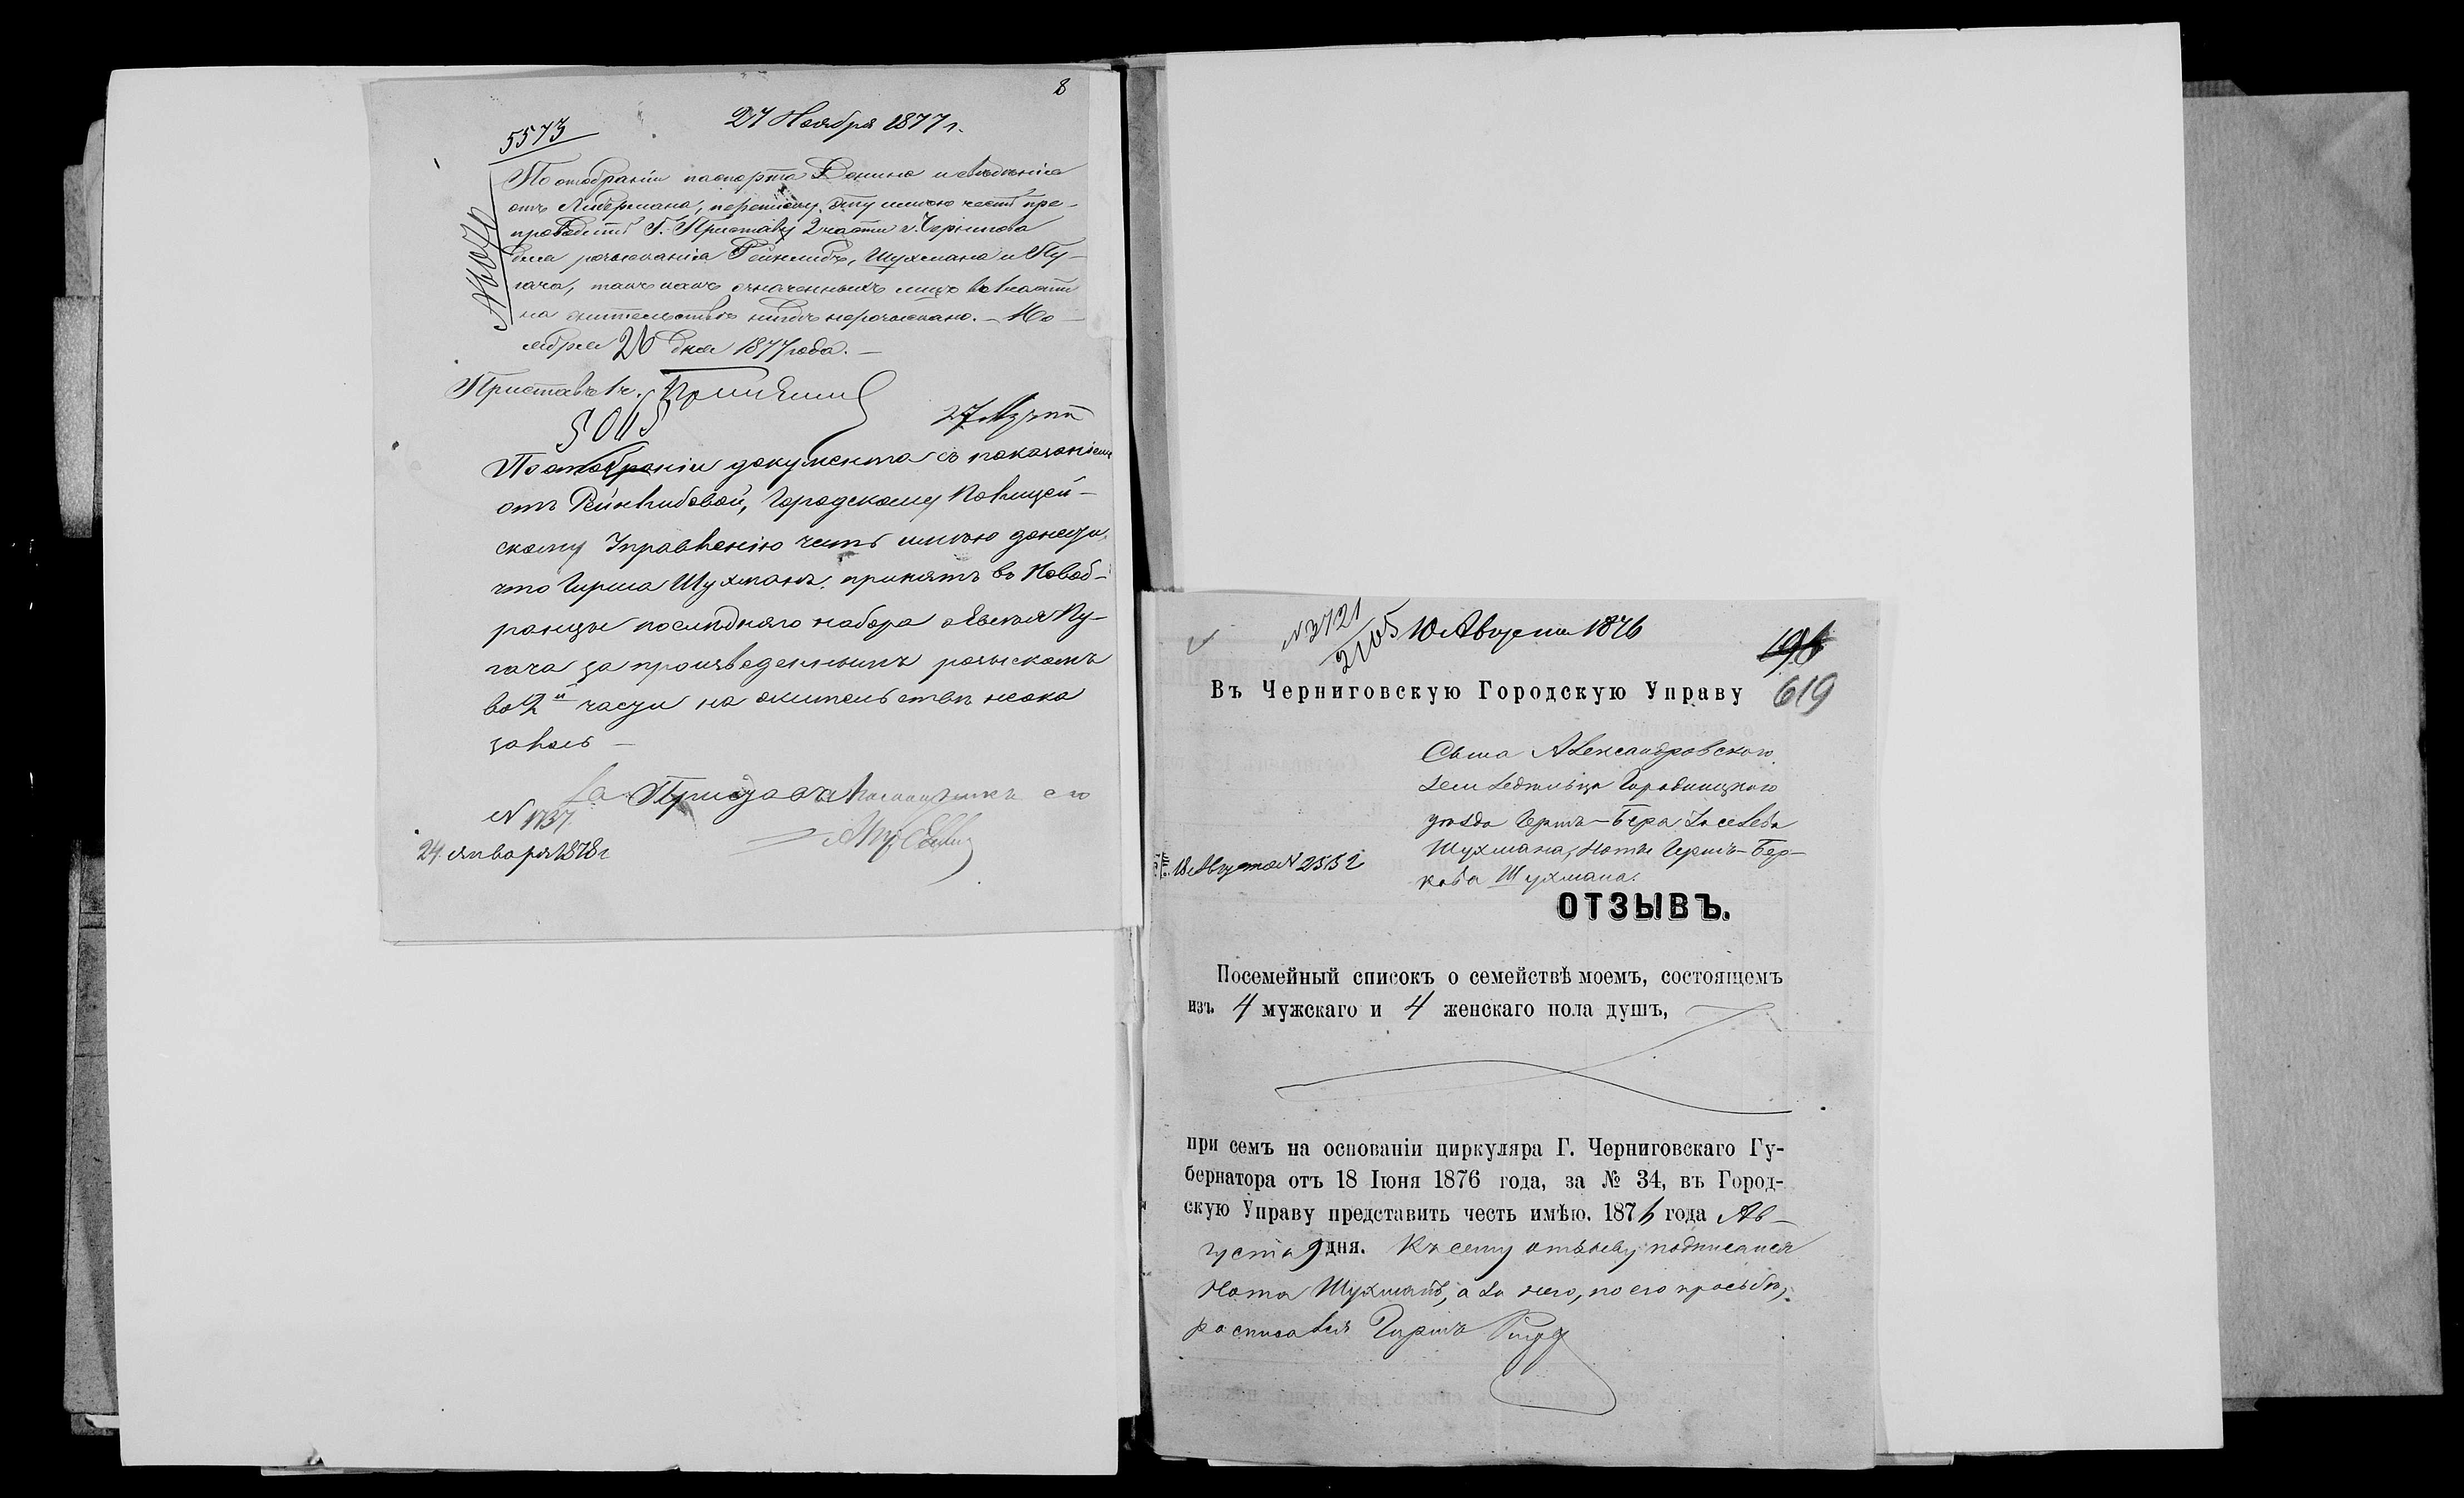 8
27 Ноября 1877 г.
5573
По отобраніи паспорта Ронина и свѣденія
отъ Либермана, переписку эту имѣю честь пре-
проводить Г. Приставу 2 части г. Чернигова
для розысканія Рейнлибъ, Шухмана и Пу-
гача, такъ какъ означенныхъ лицъ въ 1 части
на жительствѣ нигдѣ нерозыскано. – Но-
ября 26 дня 1877 года. –
Приставъ 1 ч.
27 Марта
По отобраніи документа съ показаніемъ
отъ Рейнлибовой, Городскому Полицей-
скому Управленію честь имѣю донести,
что Гирша Шухманъ принятъ въ Новоб-
ранцы послѣдняго набора а Пу-
гача за произведеннымъ розыскомъ
во 2й части на жительствѣ неока
залось –
За Пристава Помощникъ его
N 1737
24 января 1878 г
N 3721
2105
10 Августа 1876
196
619
Въ Черниговскую Городскую Управу
Сына Александровскаго
земледѣльца Городницкаго
уѣзда Герша-Бера
Шухмана, Ноты Гершъ-Бер-
кова Шухмана.
18 Августа N 2552
ОТЗЫВЪ.
Посемейный списокъ о семействѣ моемъ, состоящемъ
изъ 4 мужскаго и 4 женскаго пола душъ,
при семъ на основаніи циркуляра Г. Черниговскаго Гу-
бернатора отъ 18 Іюня 1876 года, за № 34, въ Город-
скую Управу представить честь имѣю. 1876 года Ав-
густа 9 дня. Къ сему отзыву подписался
Нота Шухманъ, а за него, по его просьбѣ,
росписался Гиршъ